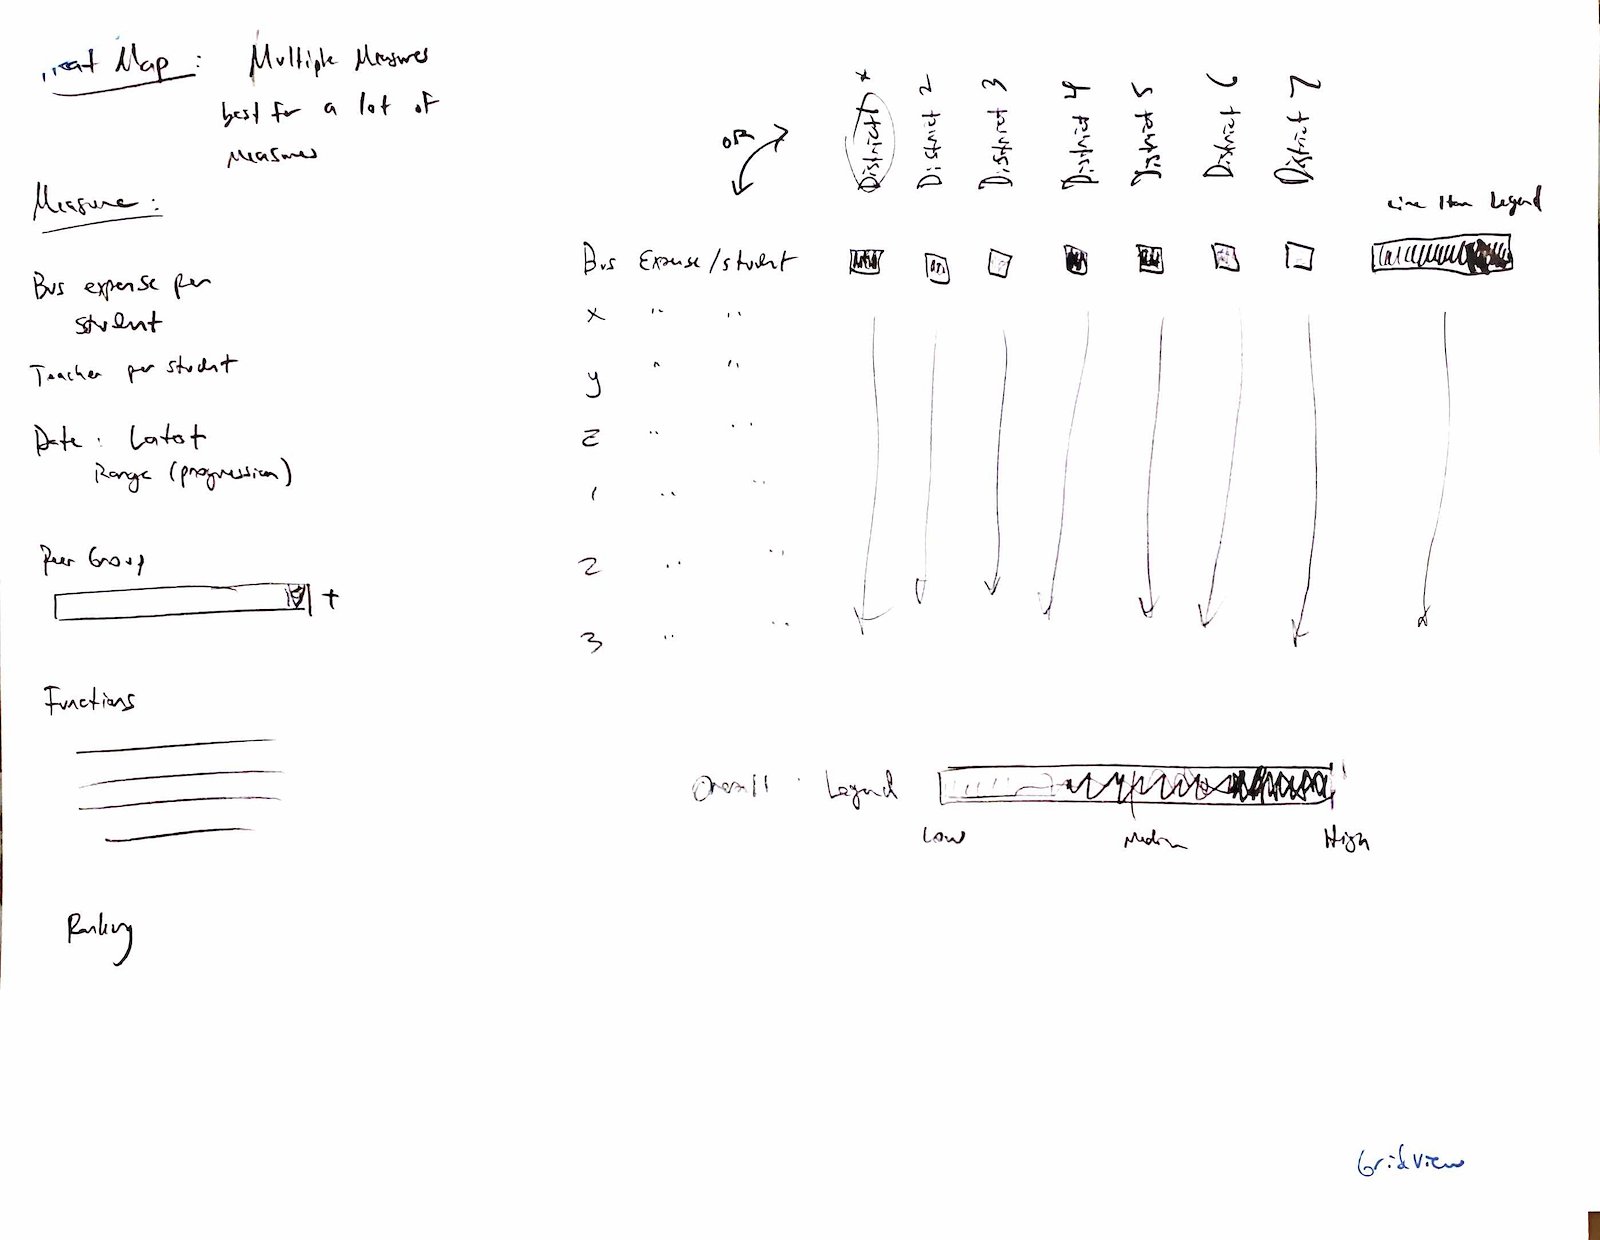 Heat Map : Multiple Measures
best for a lot of
Measures
Measure :
Bus expense per
student
Teacher per student
Date : Latest
Range (progression)
Peer Group
+
Functions
Ranking
OR
District 1 *
District 2
District 3
District 4
District 5
District 6
District 7
Line Item Legend
Bus Expense/student
x " "
y " "
z " "
1 " "
2 " "
3 " "
Overall Legend
Low Medium High
GridView